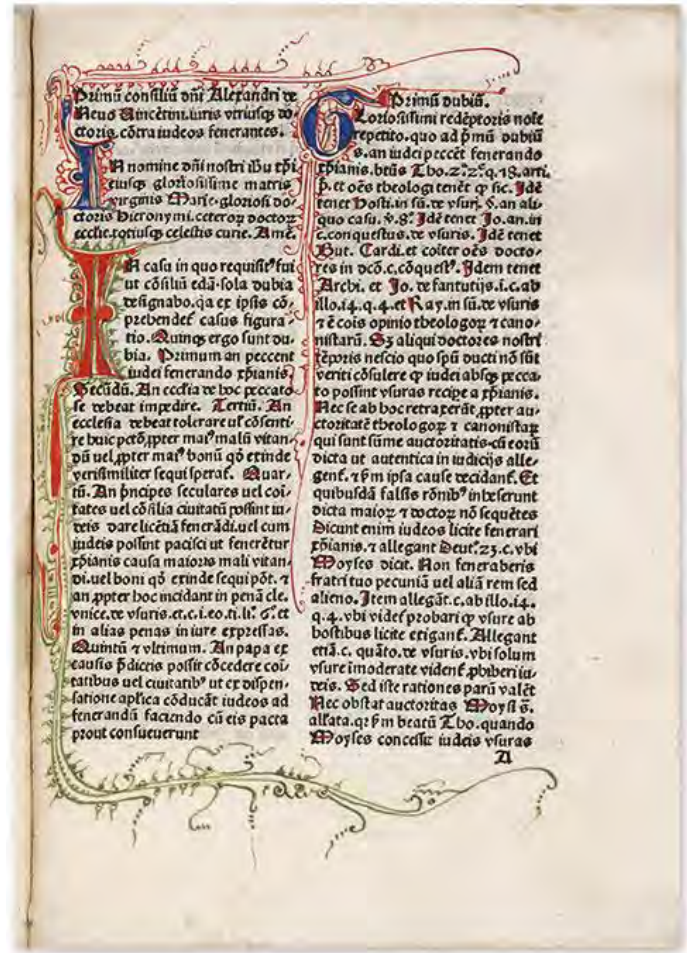 Primū consiliū dn̄i Alexandri de
Neuo Vincētini. iuris vtriusqꝫ do-
ctoris. cōtra iudeos fenerantes.
IN nomine dn̄i nostri ihu xp̄i
eiusqꝫ gloriosissime matris
virginis Marie. gloriosi do-
ctoris Hieronymi. ceterorꝫ doctorꝫ
ecclie. totiusqꝫ celestis curie. Amē.
IN casu in quo requisitꝰ fui
ut cōsiliū edā. sola dubia
designabo. qa ex ipsis cō-
prehendet̄ casus figura-
tio. Quinqꝫ ergo sunt du-
bia. Primum an peccent
iudei fenerando xp̄ianis.
Secūdū. An ecclia de hoc peccato
se debeat impedire. Tertiū. An
ecclesia debeat tolerare ul̄ cōsenti-
re huic pctō. ꝓpter maiꝰ malū vitan-
dū uel ꝓpter maiꝰ bonū qd̄ exinde
verisimiliter sequi sperat̄. Quar-
tū. An p̄ncipes seculares uel coī-
tates uel cōsilia ciuitatū possint iu-
deis dare licētiā fenerādi. uel cum
iudeis possint pacisci ut fenerētur
xp̄ianis causa maioris mali vitan-
di. uel boni qd̄ exinde sequi pōt. ⁊
an ꝓpter hoc incidant in penā cle.
vnice. de vsuris. et. c. i. eo. ti. li. 6°. et
in alias penas in iure expressas.
Quintū ⁊ vltimum. An papa ex
causis p̄dictis possit cōcedere coī-
tatibus uel ciuitatibꝰ ut ex dispen-
satione aplica cōducāt iudeos ad
fenerandū faciendo cū eis pacta
prout consueuerunt
Primū dubiū.
Gloriosissimi redēptoris nole
repetito. quo ad p̄mū dubiū
s. an iudei peccēt fenerando
xp̄ianis. btūs Tho. 2ª. 2ᵉ. q. 78. arti.
p̄. et oēs theologi tenēt qꝫ sic. Idē
tenet Hosti. in sū. de vsurj. §. an ali-
quo casu. v̄. 8°. Idē tenet Jo. an. in
c. conquestus. de vsuris. Idē tenet
But. Cardi. et coīter oēs docto-
res in dcō. c. cōquestꝰ. Idem tenet
Archi. et Jo. de fantutijs. i. c. ab
illo. 14. q. 4. et Ray. in sū. de vsuris
⁊ ē coīs opinio theologorꝫ ⁊ cano-
nistarū. Sꝫ aliqui doctores nostri
tēporis nescio quo spū ducti nō sūt
veriti cōsulere qꝫ iudei absqꝫ pecca-
to possint vsuras recipe a xp̄ianis.
Nec se ab hoc retraxerūt ꝓpter au-
ctoritatē theologorꝫ ⁊ canonistarꝫ
qui sunt sūme auctoritatis. cū eorū
dicta ut autentica in iudicijs alle-
gent̄. ⁊ s̄m ipsa cause decidant̄. Et
quibusdā falsis rōnibꝰ inheserunt
dicta maiorꝫ ⁊ doctorꝫ nō sequētes
Dicunt enim iudeos licite fenerari
xp̄ianis. ⁊ allegant Deut. 23. c. vbi
Moyses dicit. Non feneraberis
fratri tuo pecuniā uel aliā rem sed
alieno. Item allegāt. c. ab illo. 14.
q. 4. vbi videt̄ probari qꝫ vsure ab
hostibus licite exigant̄. Allegant
etiā. c. quāto. de vsuris. vbi solum
vsure imoderate vident̄ ꝓhiberi iu-
deis. Sed iste rationes parū valēt
Nec obstat auctoritas Moysi s̄.
all̄ata. qꝛ s̄m beatū Tho. quando
Moyses concessit iudeis vsuras
A